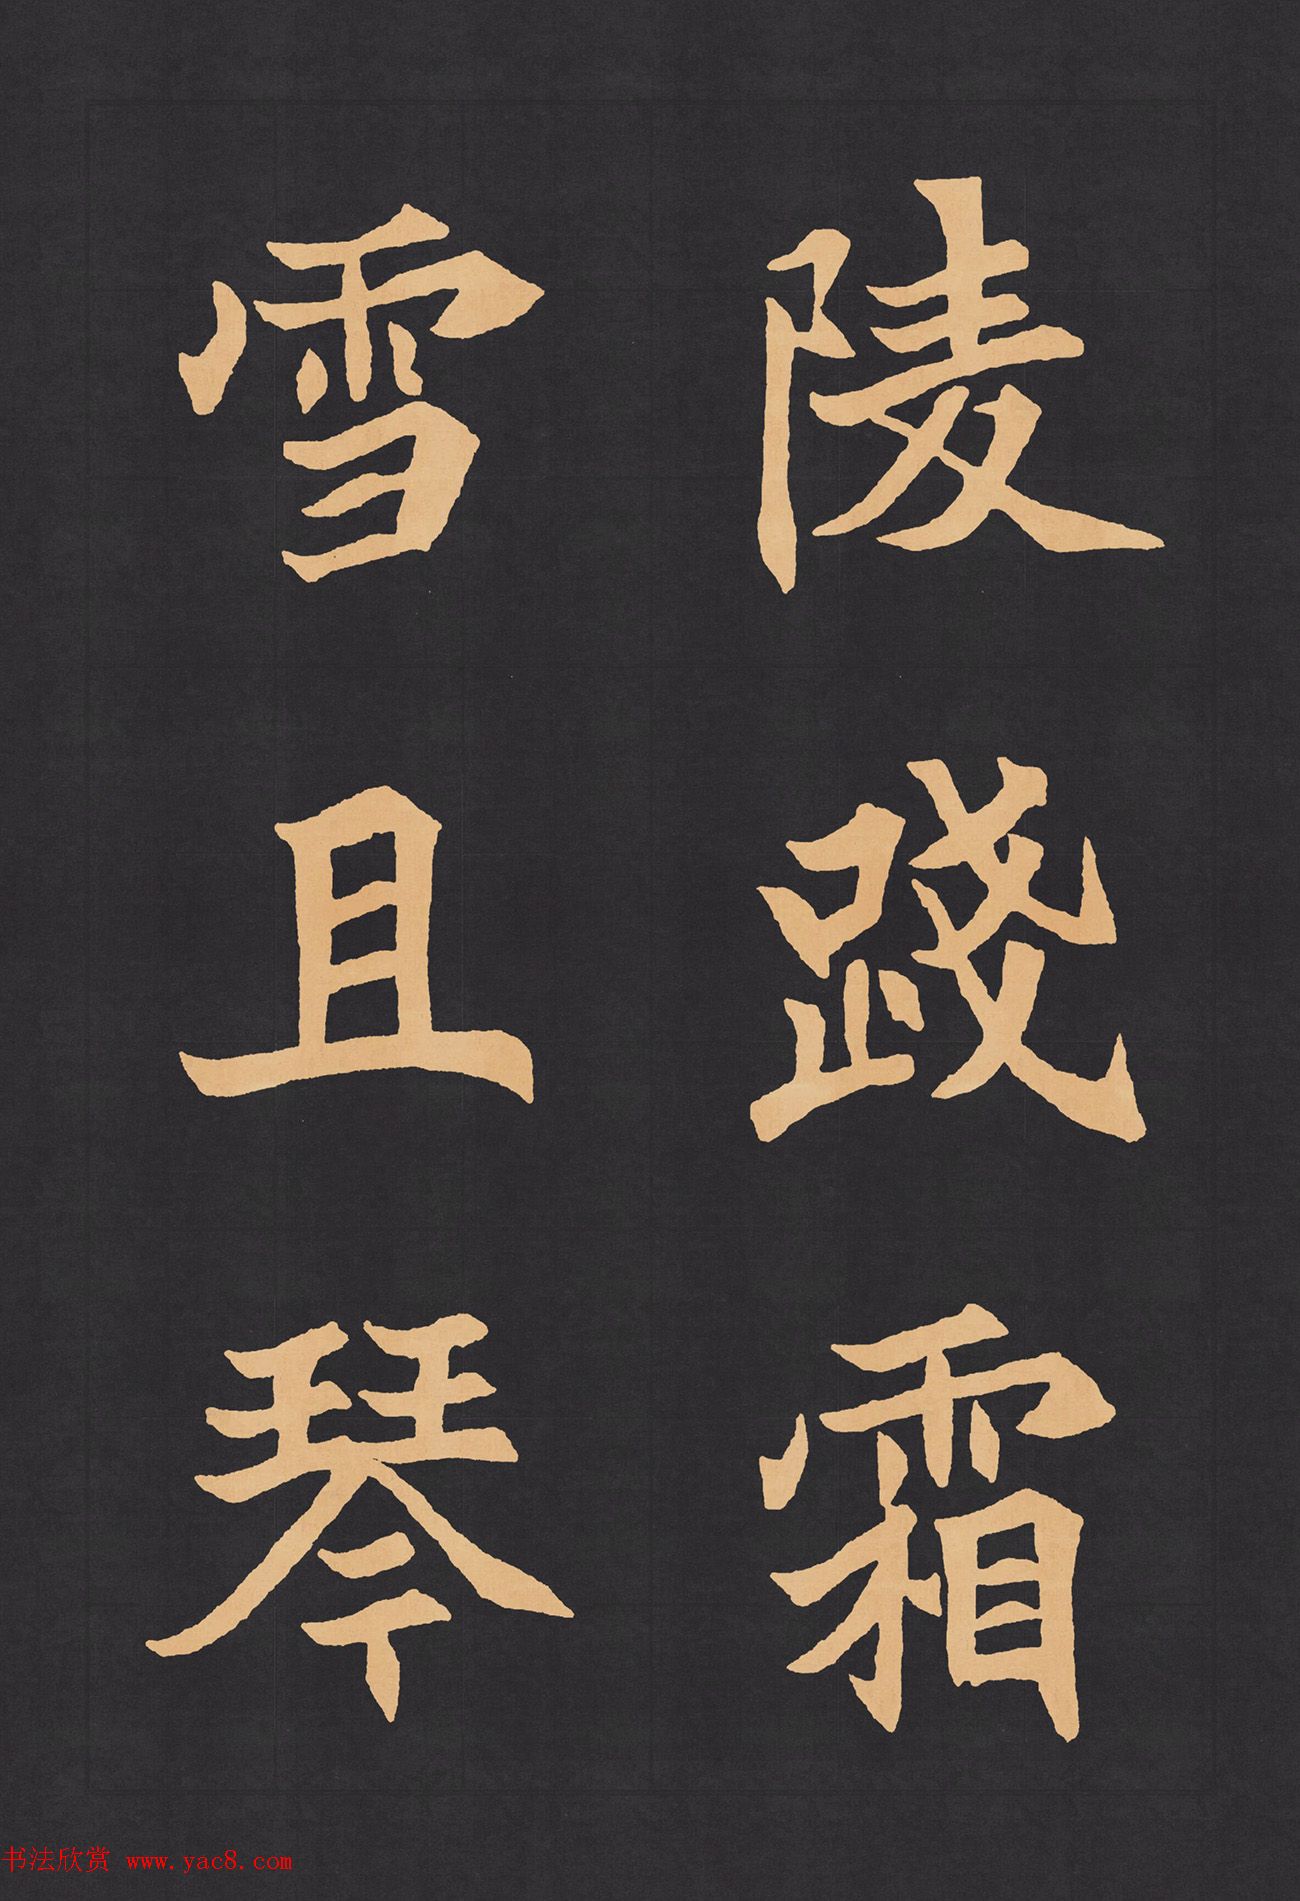 陵踐霜
雪且琴
书法欣赏 www.yac8.com